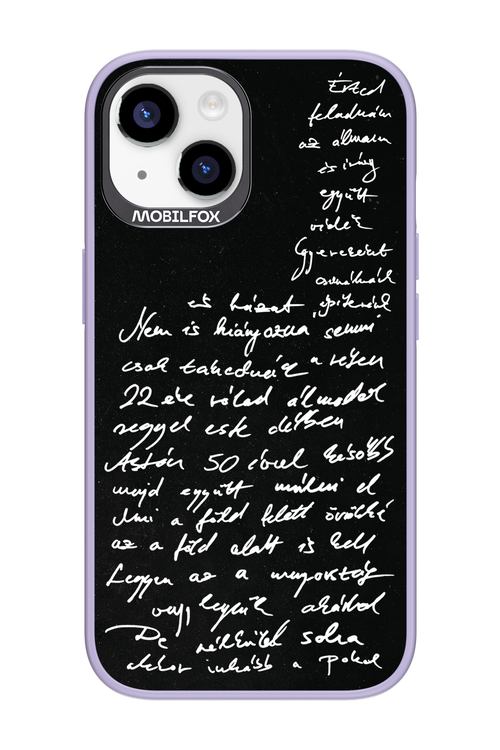 MOBILFOX
Érted
feladnám
az álmaim
és így
együtt
vidék
Gyerekeket
csinálnánk
és házat építenénk
Nem is hiányozna semmi
csak takednék a
22 éve rólad álmodok
reggel este délben
Aztán 50 évvel később
majd együtt múlni el
Ami a föld felett örökké
az a föld alatt is kell
Legyen az a mennyország
vagy legyünk akárhol
De nélküled soha
akkor inkább a pokol